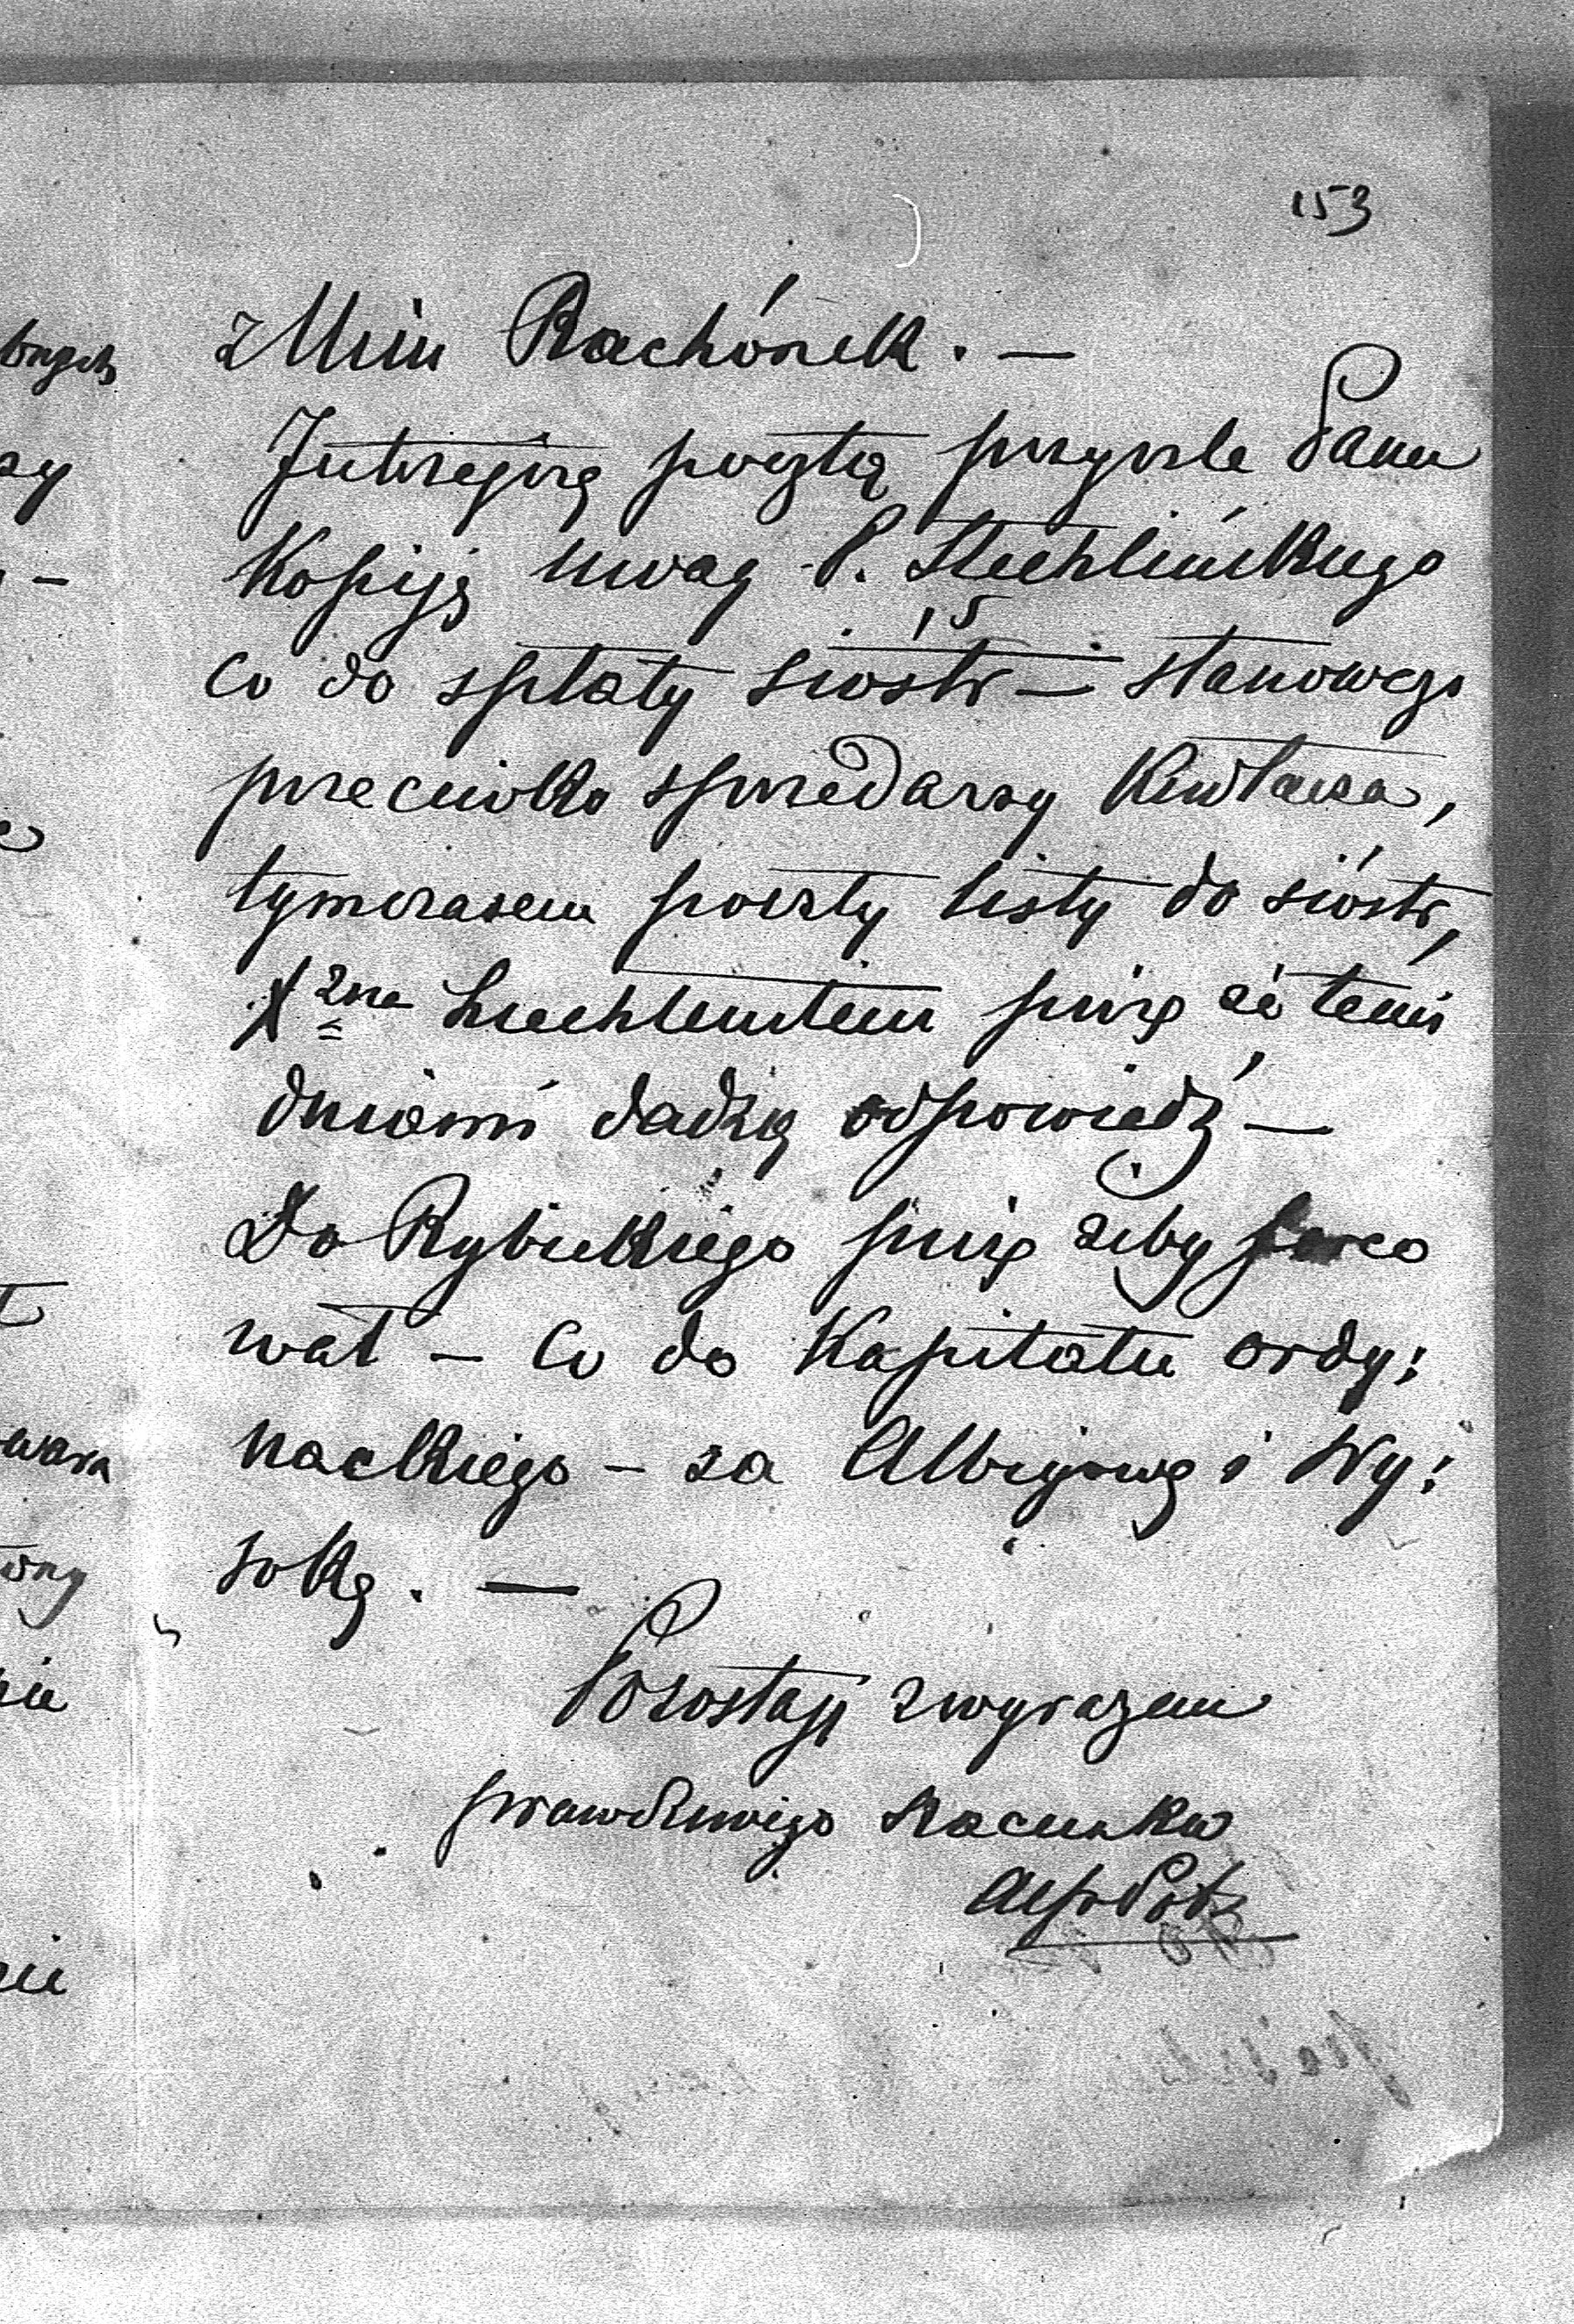 153
z Miin Rachónek. —
Jutrzejszą pocztą przyszle Panu
Kopiją uwag P. Stechlińskiego
co do spłaty sióstr — stanowczo
przeciwko sprzedarzy
tymczasem poszły listy do sióstr,
X zna Liechtenstein pisze że temi
dniami dadzą odpowiedź —
Do Rybickiego piszę żeby praco
wał — Co do Kapitału ordy:
nackiego — za Albigową i Wy:
soką. —
Pozostaję z wyrazem
prawdziwego szacunku
Alfr Potz